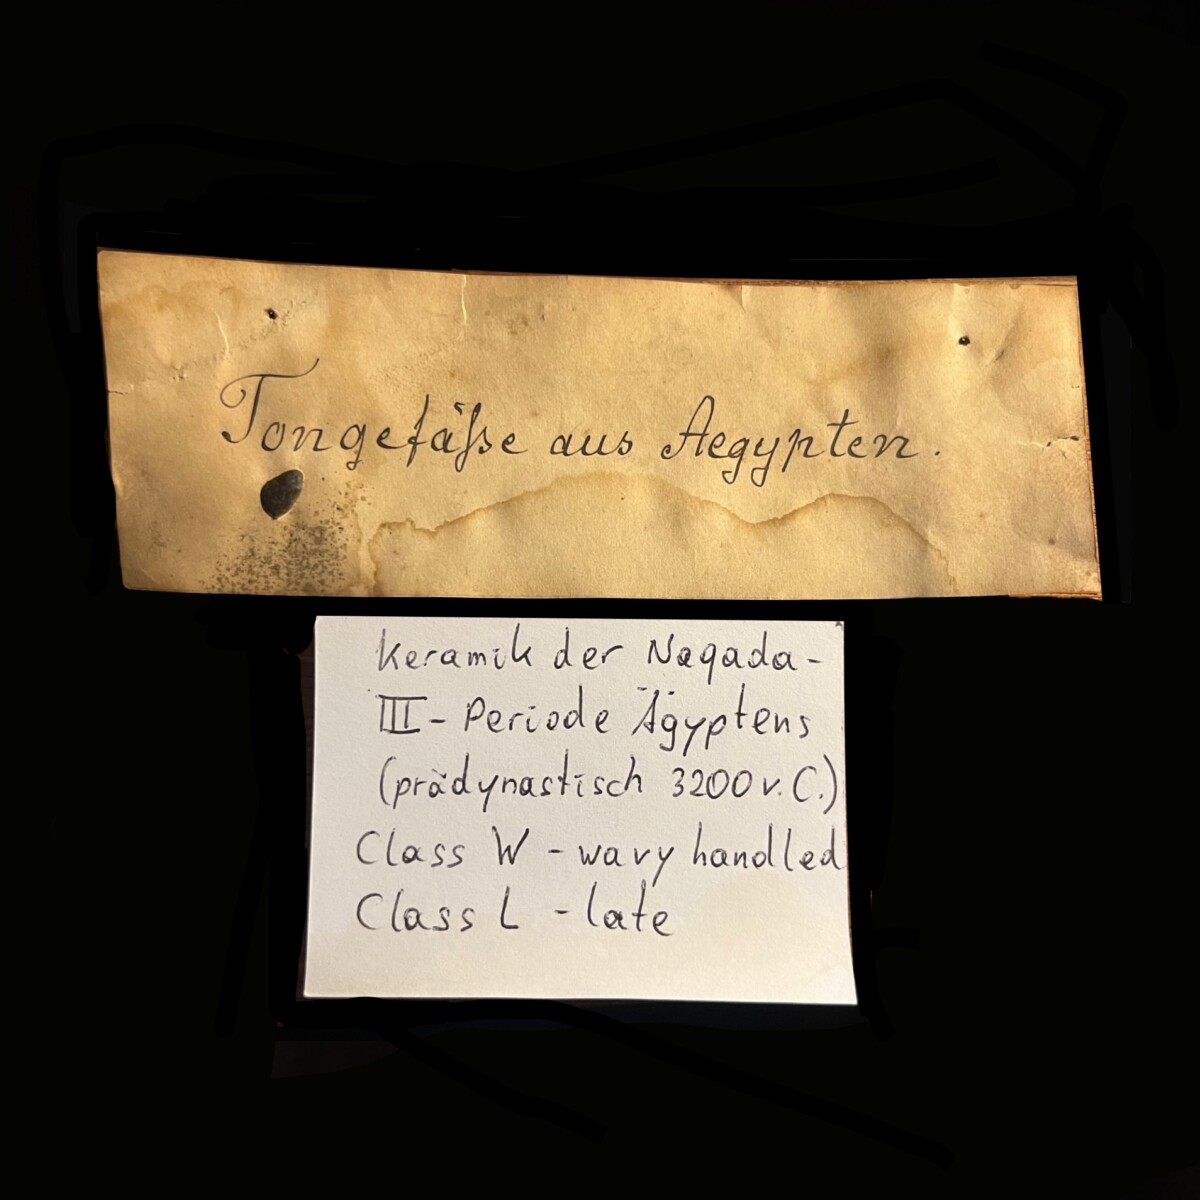 Tongefäße aus Aegypten.
Keramik der Naqada-
III-Periode Ägyptens
(prädynastisch 3200 v. C.)
Class W - wavy handled
Class L - late